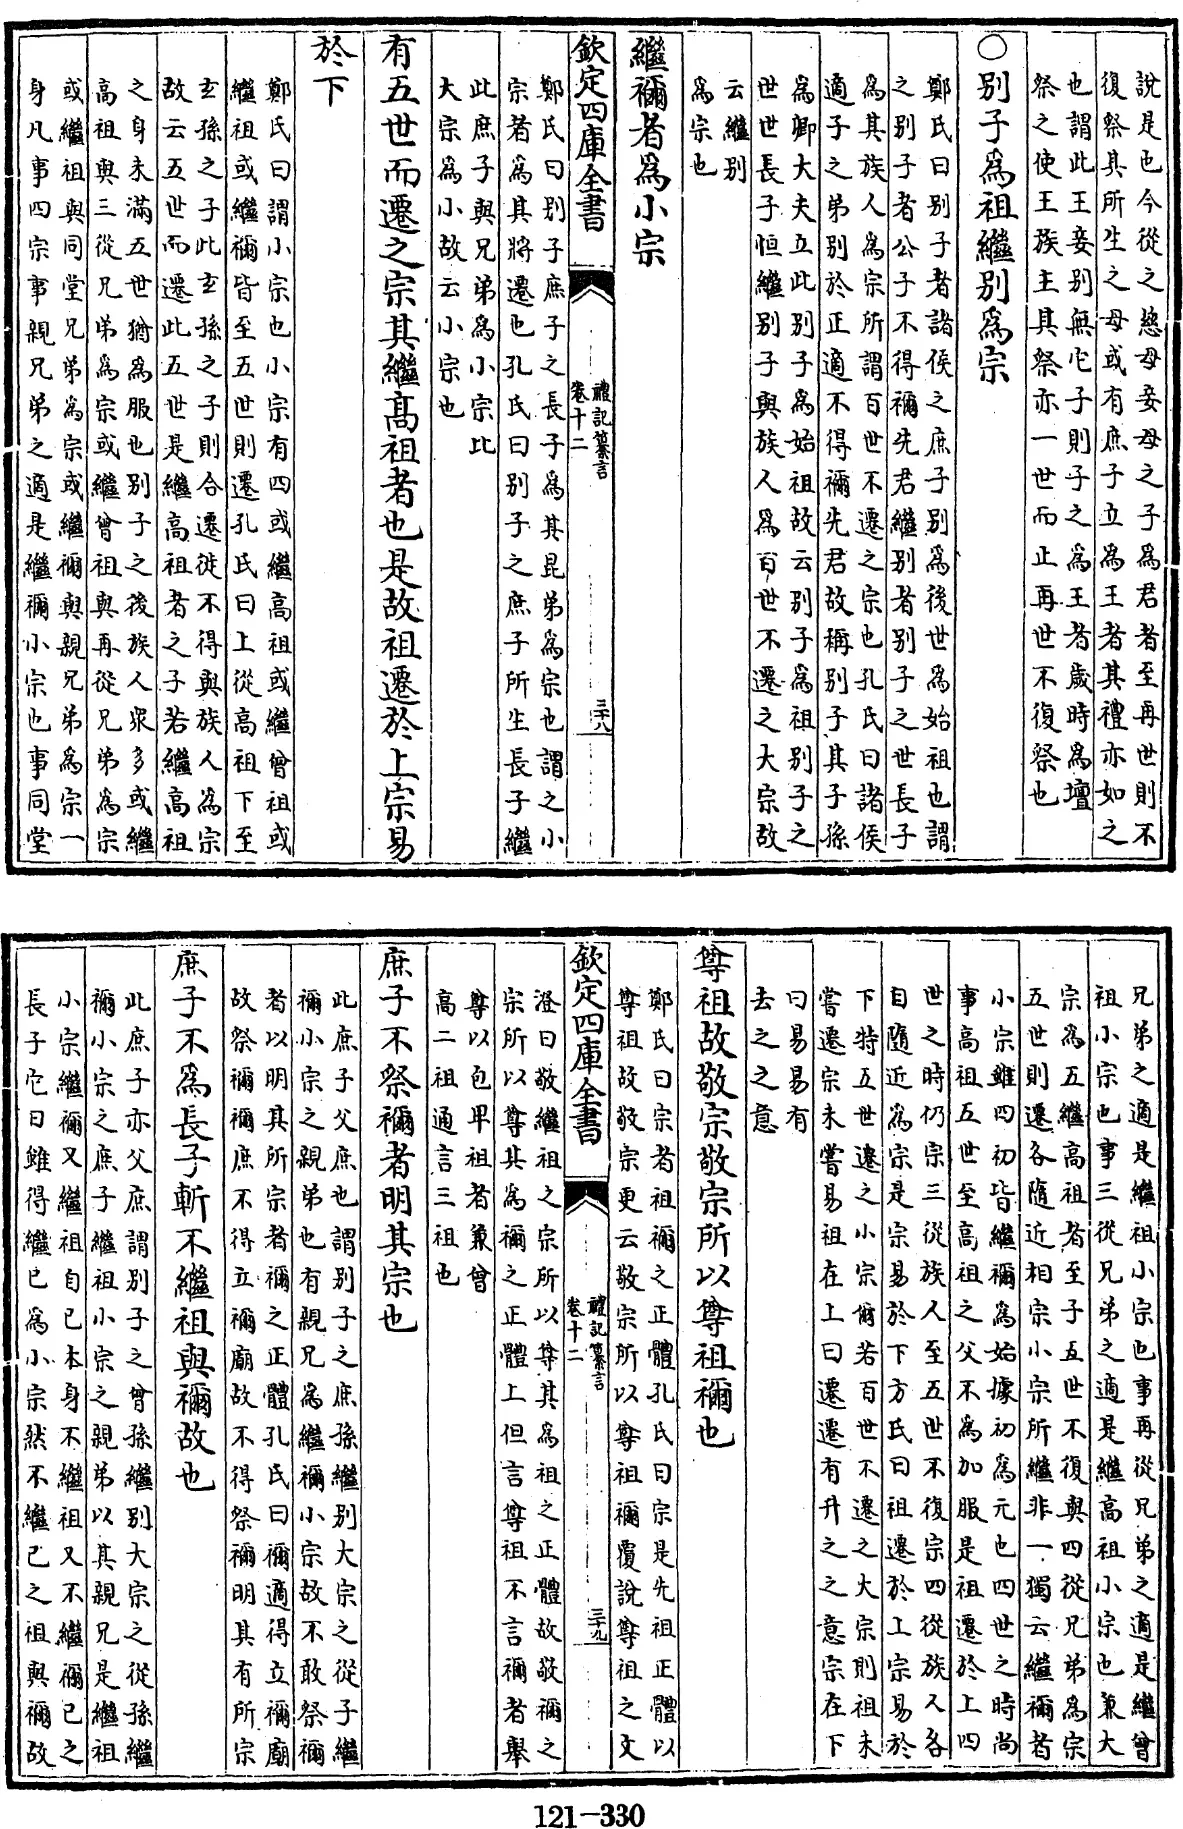 說是也今從之慈母妾母之子爲君者至再世則不
復祭其所生之母或有庶子立爲王者其禮亦如之
也謂此王妾別無它子則子之爲王者歲時爲壇
祭之使王族主其祭亦一世而止再世不復祭也
○別子爲祖繼別爲宗
鄭氏曰別子者諸侯之庶子別爲後世爲始祖也謂
之別子者公子不得禰先君繼別者別子之世長子
爲其族人爲宗所謂百世不遷之宗也孔氏曰諸侯
適子之弟別於正適不得禰先君故稱別子其子孫
爲卿大夫立此別子爲始祖故云別子爲祖別子之
世世長子恒繼別子與族人爲百世不遷之大宗故
云繼別
爲宗也
繼禰者爲小宗
欽定四庫全書
禮記纂言
卷十二
三十八
鄭氏曰別子庶子之長子爲其昆弟爲宗也謂之小
宗者爲其將遷也孔氏曰別子之庶子所生長子繼
此庶子與兄弟爲小宗比
大宗爲小故云小宗也
有五世而遷之宗其繼高祖者也是故祖遷於上宗易
於下
鄭氏曰謂小宗也小宗有四或繼高祖或繼曾祖或
繼祖或繼禰皆至五世則遷孔氏曰上從高祖下至
玄孫之子此玄孫之子則合遷徙不得與族人爲宗
故云五世而遷此五世是繼高祖者之子若繼高祖
之身未滿五世猶爲服也別子之後族人衆多或繼
高祖與三從兄弟爲宗或繼曾祖與再從兄弟爲宗
或繼祖與同堂兄弟爲宗或繼禰與親兄弟爲宗一
身凡事四宗事親兄弟之適是繼禰小宗也事同堂
兄弟之適是繼祖小宗也事再從兄弟之適是繼曾
祖小宗也事三從兄弟之適是繼高祖小宗也兼大
宗爲五繼高祖者至子五世不復與四從兄弟爲宗
五世則遷各隨近相宗小宗所繼非一獨云繼禰者
小宗雖四初皆繼禰爲始據初爲元也四世之時尚
事高祖五世至高祖之父不爲加服是祖遷於上四
世之時仍宗三從族人至五世不復宗四從族人各
自隨近爲宗是宗易於下方氏曰祖遷於上宗易於
下特五世遷之小宗爾若百世不遷之大宗則祖未
嘗遷宗未嘗易祖在上曰遷遷有升之之意宗在下
曰易易有
去之之意
尊祖故敬宗敬宗所以尊祖禰也
鄭氏曰宗者祖禰之正體孔氏曰宗是先祖正體以
尊祖故敬宗更云敬宗所以尊祖禰覆說尊祖之文
欽定四庫全書
禮記纂言
卷十二
三十九
澄曰敬繼祖之宗所以尊其爲祖之正體故敬禰之
宗所以尊其爲禰之正體上但言尊祖不言禰者舉
尊以包卑祖者兼曾
高二祖通言三祖也
庶子不祭禰者明其宗也
此庶子父庶也謂別子之庶孫繼別大宗之從子繼
禰小宗之親弟也有親兄爲繼禰小宗故不敢祭禰
者以明其所宗者禰之正體孔氏曰禰適得立禰廟
故祭禰禰庶不得立禰廟故不得祭禰明其有所宗
庶子不爲長子斬不繼祖與禰故也
此庶子亦父庶謂別子之曾孫繼別大宗之從孫繼
禰小宗之庶子繼祖小宗之親弟以其親兄是繼祖
小宗繼禰又繼祖自己本身不繼祖又不繼禰己之
長子它日雖得繼己爲小宗然不繼己之祖與禰故
121-330